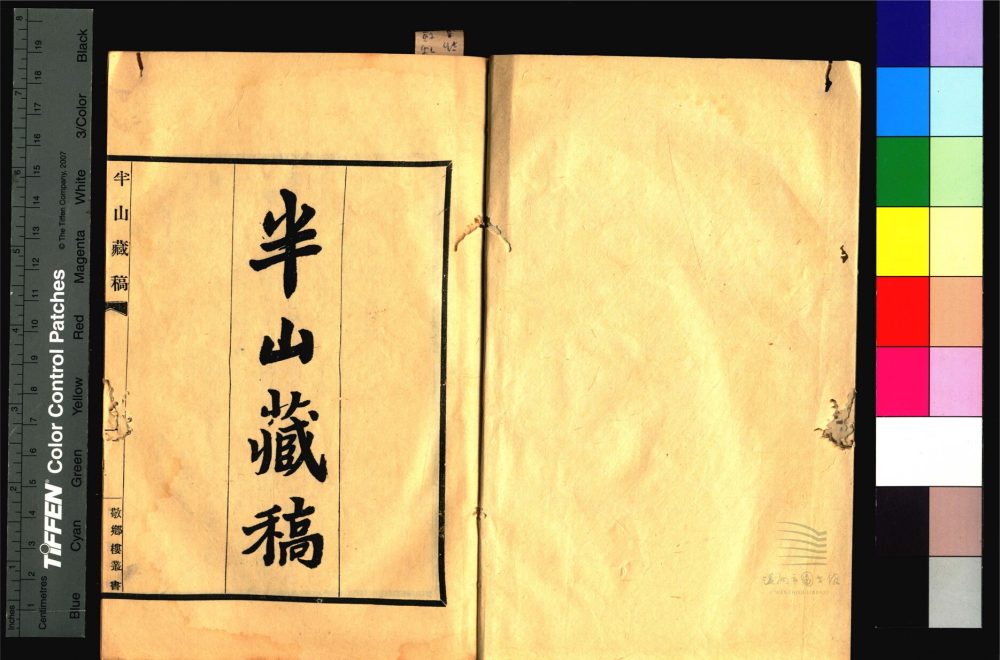 半山藏稿
半山藏稿
敬鄉樓叢書
溫州市圖書館
WENZHOU LIBRARY
Inches
1 2 3 4 5 6 7 8
Centimetres
1 2 3 4 5 6 7 8 9 10 11 12 13 14 15 16 17 18 19
TIFFEN® Color Control Patches
© The Tiffen Company, 2007
Blue Cyan Green Yellow Red Magenta White 3/Color Black